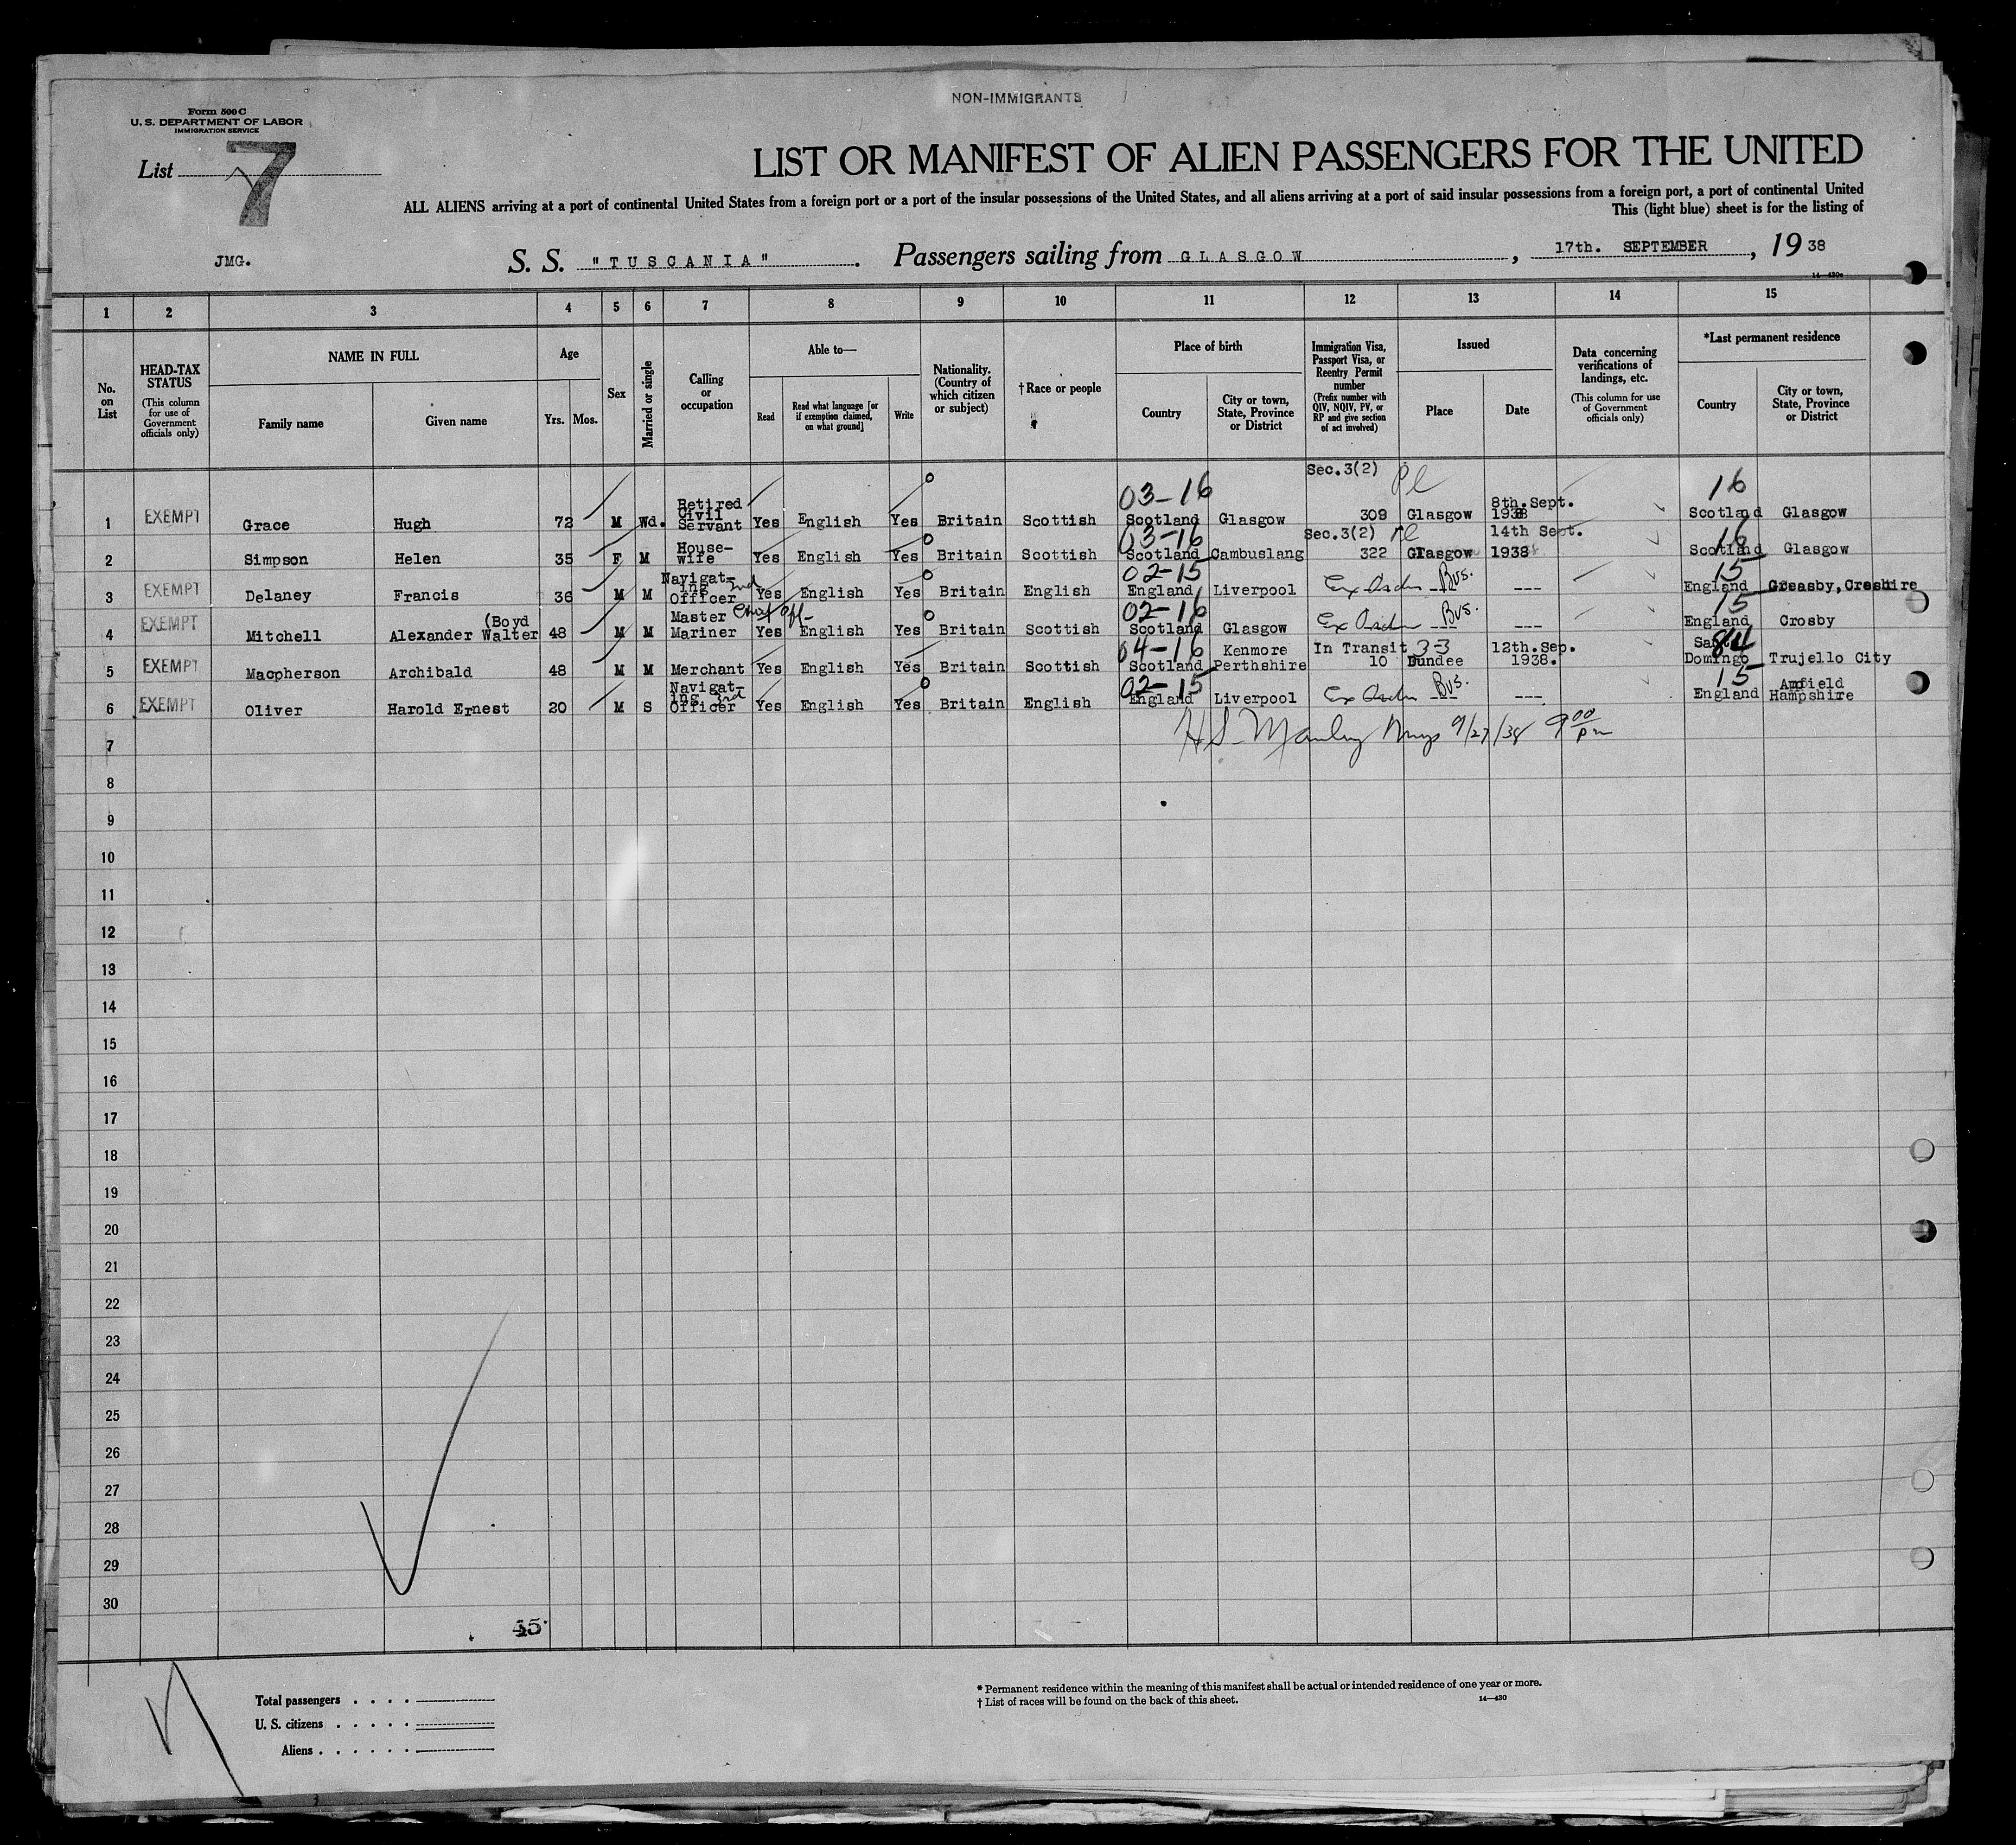 NON-IMMIGRANTS
Form 500 C
U. S. DEPARTMENT OF LABOR
IMMIGRATION SERVICE
List 7
LIST OR MANIFEST OF ALIEN PASSENGERS FOR THE UNITED
ALL ALIENS arriving at a port of continental United States from a foreign port or a port of the insular possessions of the United States, and all aliens arriving at a port of said insular possessions from a foreign port, a port of continental United
This (light blue) sheet is for the listing of
JMG. S. S. "TUSCANIA" . Passengers sailing from GLASGOW , 17th. SEPTEMBER , 19 38
14—430a
1 2 3 4 5 6 7 8 9 10 11 12 13 14 15
No. on List
HEAD-TAX STATUS
(This column for use of Government officials only)
NAME IN FULL
Family name Given name
Age
Yrs. Mos.
Sex
Married or single
Calling or occupation
Able to—
Read
Read what language [or if exemption claimed, on what ground]
Write
Nationality. (Country of which citizen or subject)
†Race or people
Place of birth
Country
City or town, State, Province or District
Immigration Visa, Passport Visa, or Reentry Permit number
(Prefix number with QIV, NQIV, PV, or RP and give section of act involved)
Issued
Place Date
Data concerning verifications of landings, etc.
(This column for use of Government officials only)
*Last permanent residence
Country
City or town, State, Province or District
Sec.3(2)
03-16 16
1 EXEMPT Grace Hugh 72 M Wd. Retired Civil Servant Yes English Yes Britain Scottish Scotland Glasgow 309 Glasgow 8th.Sept. 1938 Scotland Glasgow
03-16 Sec.3(2) 16
2 Simpson Helen 35 F M House-wife Yes English Yes Britain Scottish Scotland Cambuslang 322 Glasgow 14th Sept. 1938 Scotland Glasgow
02-15 15
3 EXEMPT Delaney Francis 36 M M Navigat-ing Officer 2nd Yes English Yes Britain English England Liverpool Bus. --- --- England Greasby,
02-16 15
4 EXEMPT Mitchell Alexander (Boyd Walter 48 M M Master Mariner Yes English Yes Britain Scottish Scotland Glasgow Bus. --- --- England Crosby
04-16 3-3 84
5 EXEMPT Macpherson Archibald 48 M M Merchant Yes English Yes Britain Scottish Scotland Kenmore Perthshire In Transit 10 Dundee 12th.Sep. 1938. Santo Domingo Trujello City
02-15 15
6 EXEMPT Oliver Harold Ernest 20 M S Navigat-ing Officer 3rd Yes English Yes Britain English England Liverpool Bus. --- England Hampshire
7 9/27/38 9 00 pm
8
9
10
11
12
13
14
15
16
17
18
19
20
21
22
23
24
25
26
27
28
29
30
Total passengers . . . .
U. S. citizens . . . . .
Aliens . . . . . .
* Permanent residence within the meaning of this manifest shall be actual or intended residence of one year or more.
† List of races will be found on the back of this sheet.
14—430